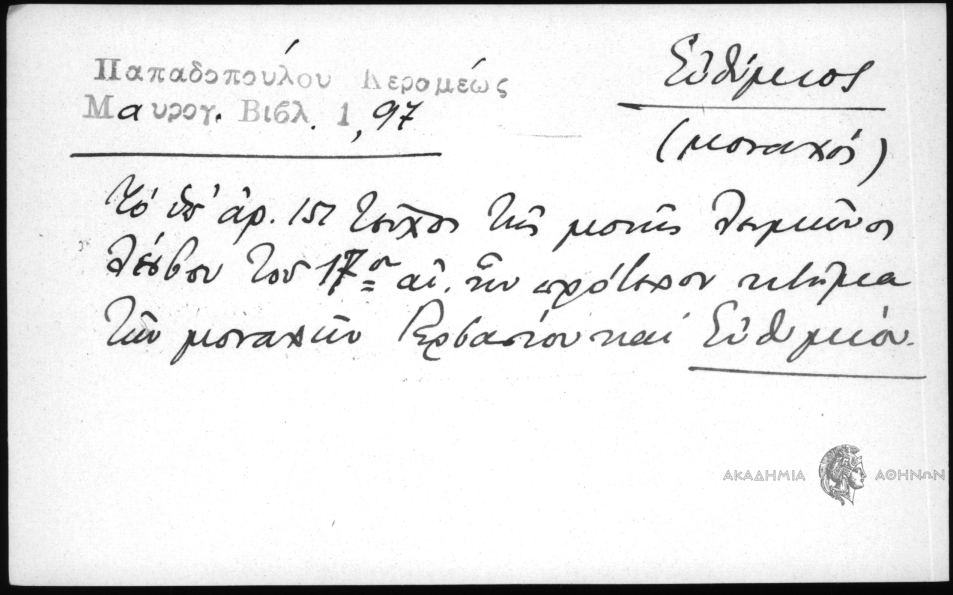 Παπαδοπούλου Κεραμέως
Μαυρογ. Βιβλ. 1, 97
Εὐθύμιος
(μοναχός)
Τό ὑπ' ἀρ. 151 τεῦχος τῆς μονῆς Λειμῶνος
Λέσβου τοῦ 17ου αἰ. ἦν πρότερον κτῆμα
τῶν μοναχῶν καί Εὐθυμίου.
ΑΚΑΔΗΜΙΑ ΑΘΗΝΩΝ